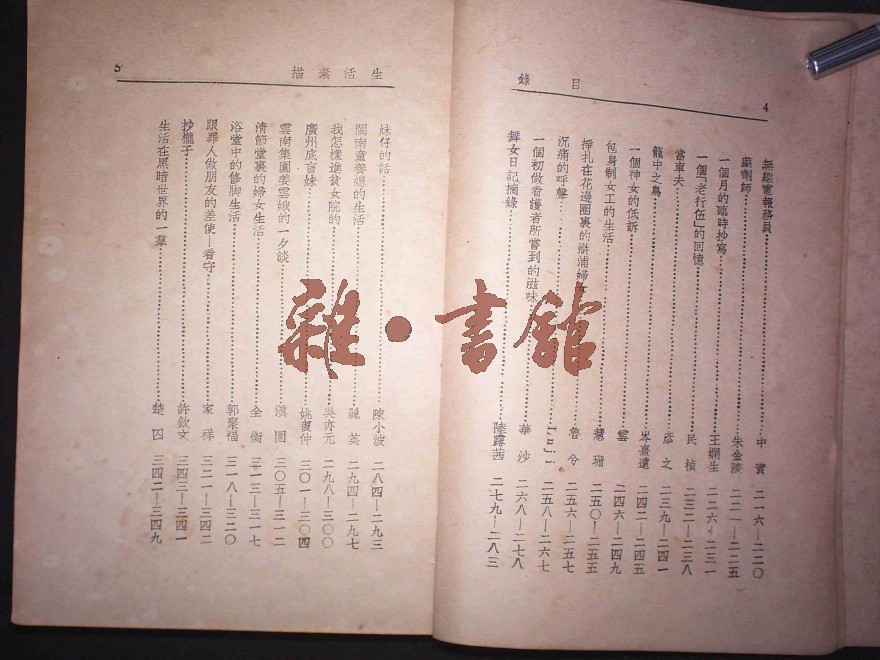 目錄
4
無線電報務員 中實 二一六—二二〇
藥劑師 朱金陵 二二一—二二五
一個月的臨時抄寫 王嫻生 二二六—二三一
一個「老行伍」的回憶 民楨 二三二—二三八
當車夫 彥之 二三九—二四一
籠中之鳥 岑熹遠 二四二—二四五
一個神女的低訴 雲 二四六—二四九
包身制女工的生活 慧珊 二五〇—二五五
掙扎在花邊圈裏的滸浦婦女 魯兮 二五六—二五七
沉痛的呼聲 Luji 二五八—二六七
一個初做看護者所嘗到的滋味 華沙 二六八—二七八
舞女日記摘錄 陸露茜 二七九—二八三
生活素描
5
妹仔的話 陳小波 二八四—二九三
閩南童養媳的生活 麗英 二九四—二九七
我怎樣進貧女院的 吳亦元 二九八—三〇〇
廣州底盲妹 姚寅仲 三〇一—三〇四
雲南集園姜雲娥的一夕談 滇團 三〇五—三一二
清節堂裏的婦女生活 全衡 三一三—三一七
浴堂中的修脚生活 郭聚福 三一八—三二〇
跟罪人做朋友的差使—看守 家祥 三二一—三四二
抄櫳子 許欽文 三四三—三四一
生活在黑暗世界的一羣 楚囚 三四二—三四九
雜·書館